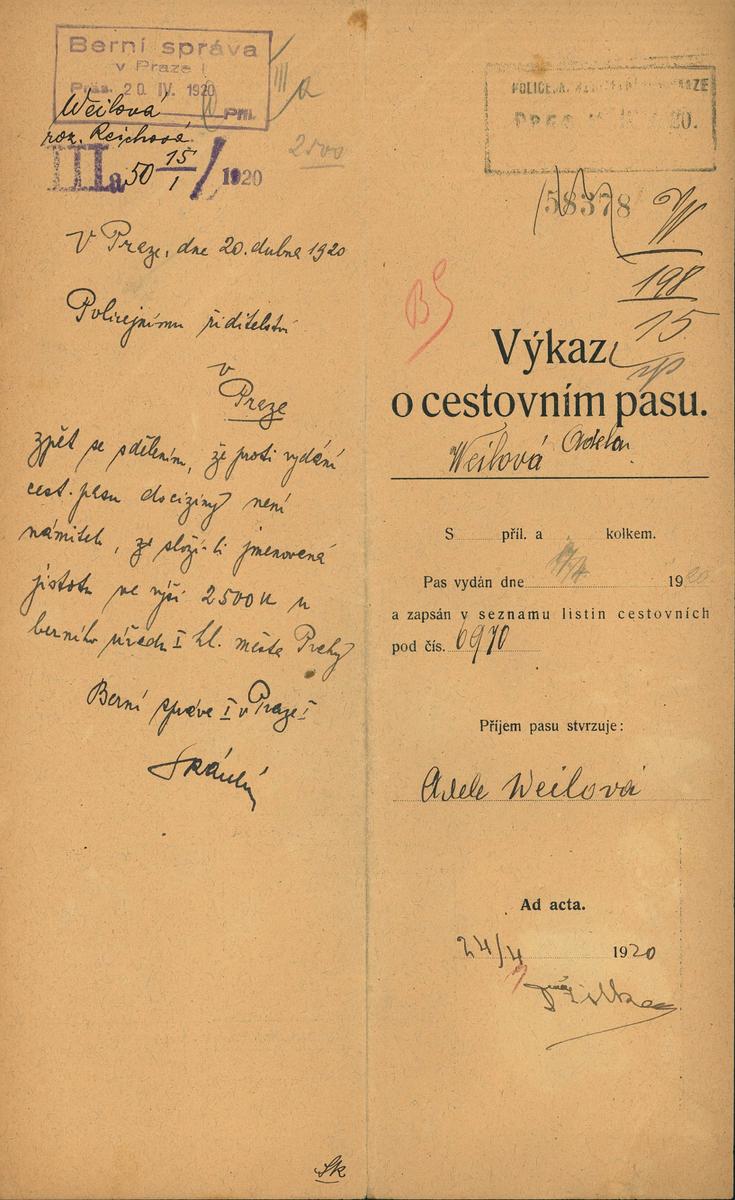 Berní správa
v Praze I
Präs. 20. IV. 1920
Příl.
III a
Weilová
roz. Reichová
2500
IIIa 50 15/1 / 1920
V Praze, dne 20. dubna 1920
Policejnímu ředitelství
v
Praze
zpět se sdělením, že proti vydání
cest. pasu do ciziny není
námitek, složí-li jmenovaná
jistotu ve výši 2500 K u
berního úřadu I hl. města Prahy
Berní správa I v Praze I
Sk
58378
W
198
15
BS
Výkaz
o cestovním pasu.
Weilová Adela
S příl. a kolkem.
Pas vydán dne 1920
a zapsán v seznamu listin cestovních
pod čís. 6970
Příjem pasu stvrzuje:
Adele Weilová
Ad acta.
24/4 1920